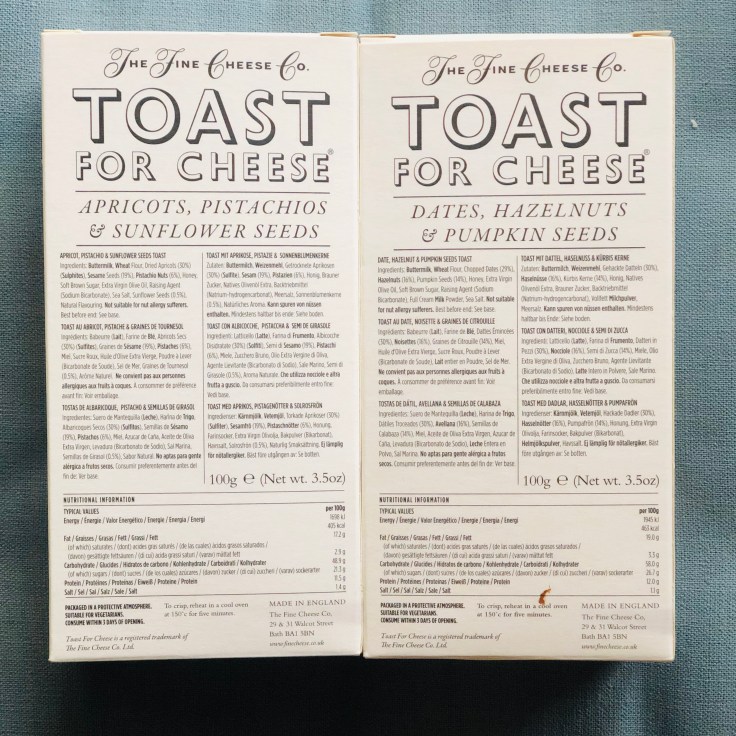 The Fine Cheese Co.
TOAST
FOR CHEESE®
APRICOTS, PISTACHIOS
& SUNFLOWER SEEDS
APRICOT, PISTACHIO & SUNFLOWER SEEDS TOAST
Ingredients: Buttermilk, Wheat Flour, Dried Apricots (30%)
(Sulphites), Sesame Seeds (19%), Pistachio Nuts (6%), Honey,
Soft Brown Sugar, Extra Virgin Olive Oil, Raising Agent
(Sodium Bicarbonate), Sea Salt, Sunflower Seeds (0.5%),
Natural Flavouring. Not suitable for nut allergy sufferers.
Best before end: See base.
TOAST AU ABRICOT, PISTACHE & GRAINES DE TOURNESOL
Ingrédients: Babeurre (Lait), Farine de Blé, Abricots Secs
(30%) (Sulfites), Graines de Sésame (19%), Pistaches (6%),
Miel, Sucre Roux, Huile d'Olive Extra Vierge, Poudre à Lever
(Bicarbonate de Soude), Sel de Mer, Graines de Tournesol
(0.5%), Arôme Naturel. Ne convient pas aux personnes
allergiques aux fruits à coques. A consommer de préférence
avant fin: Voir emballage.
TOSTAS DE ALBARICOQUE, PISTACHO & SEMILLAS DE GIRASOL
Ingredientes: Suero de Mantequilla (Leche), Harina de Trigo,
Albaricoques Secos (30%) (Sulfitos), Semillas de Sésamo
(19%), Pistachos (6%), Miel, Azúcar de Caña, Aceite de Oliva
Extra Virgen, Levadura (Bicarbonato de Sodio), Sal Marina,
Semillas de Girasol (0.5%), Sabor Natural. No aptas para gente
alérgica a frutos secos. Consumir preferentemente antes del
fin de: Ver base.
TOAST MIT APRIKOSE, PISTAZIE & SONNENBLUMENKERNE
Zutaten: Buttermilch, Weizenmehl, Getrocknete Aprikosen
(30%) (Sulfite), Sesam (19%), Pistazien (6%), Honig, Brauner
Zucker, Natives Olivenöl Extra, Backtriebmittel
(Natrium-hydrogencarbonat), Meersalz, Sonnenblumenkerne
(0.5%), Natürliches Aroma. Kann spuren von nüssen
enthalten. Mindestens haltbar bis Ende: siehe boden.
TOAST CON ALBICOCCHE, PISTACCHIA & SEMI DE GIRASOLE
Ingredienti: Latticello (Latte), Farina di Frumento, Albicocche
Disidratate (30%) (Solfiti), Semi di Sesamo (19%), Pistacchi
(6%), Miele, Zucchero Bruno, Olio Extra Vergine di Oliva,
Agente Lievitante (Bicarbonato di Sodio), Sale Marino, Semi di
Girasole (0.5%), Aroma Naturale. Che utilizza nocciole e altra
frutta a guscio. Da consumarsi preferibilmente entro fine:
Vedi base.
TOAST MED APRINOS, PISTAGENÖTTER & SOLROSFRÖN
Ingredienser: Kärnmjölk, Vetemjöl, Torkade Aprikoser (30%)
(Sulfiter), Sesamfrö (19%), Pistaschnötter (6%), Honung,
Farinsocker, Extra Virgin Olivolja, Bakpulver (Bikarbonat),
Havssalt, Solrosfrön (0.5%), Naturlig Smaksättning. Ej lämplig
för nötallergiker. Bäst före utgången av: se botten.
100g e (Net wt. 3.5oz)
NUTRITIONAL INFORMATION
TYPICAL VALUES per 100g
Energy / Énergie / Valor Energético / Energie / Energia / Energi 1698 kJ
405 kcal
Fat / Graisses / Grasas / Fett / Grassi / Fett 17.2 g
(of which) saturates / (dont) acides gras saturés / (de los cuales) ácidos grasos saturados /
(davon) gesättigte fettsäuren / (di cui) acidi grassi saturi / (varav) mättat fett 2.9 g
Carbohydrate / Glucides / Hidratos de carbono / Kohlenhydrate / Carboidrati / Kolhydrater 48.9 g
(of which) sugars / (dont) sucres / (de los cuales) azúcares / (davon) zucker / (di cui) zuccheri / (varav) sockerarter 21.3 g
Protein / Protéines / Proteínas / Eiweiß / Proteine / Protein 11.5 g
Salt / Sel / Sal / Salz / Sale / Salt 1.4 g
PACKAGED IN A PROTECTIVE ATMOSPHERE.
SUITABLE FOR VEGETARIANS.
CONSUME WITHIN 3 DAYS OF OPENING.
To crisp, reheat in a cool oven
at 150°c for five minutes.
Toast For Cheese is a registered trademark of
The Fine Cheese Co. Ltd.
MADE IN ENGLAND
The Fine Cheese Co,
29 & 31 Walcot Street
Bath BA1 5BN
www.finecheese.co.uk
The Fine Cheese Co.
TOAST
FOR CHEESE®
DATES, HAZELNUTS
& PUMPKIN SEEDS
DATE, HAZELNUT & PUMPKIN SEEDS TOAST
Ingredients: Buttermilk, Wheat Flour, Chopped Dates (29%),
Hazelnuts (16%), Pumpkin Seeds (14%), Honey, Extra Virgin
Olive Oil, Soft Brown Sugar, Raising Agent (Sodium
Bicarbonate), Full Cream Milk Powder, Sea Salt. Not suitable
for nut allergy sufferers. Best before end: See base.
TOAST AU DATE, NOISETTE & GRAINES DE CITROUILLE
Ingrédients: Babeurre (Lait), Farine de Blé, Dattes Émincées
(30%), Noisettes (16%), Graines de Citrouille (14%), Miel,
Huile d'Olive Extra Vierge, Sucre Roux, Poudre à Lever
(Bicarbonate de Soude), Lait entier en Poudre, Sel de Mer.
Ne convient pas aux personnes allergiques aux fruits à
coques. A consommer de préférence avant fin: Voir
emballage.
TOSTAS DE DÁTIL, AVELLANA & SEMILLAS DE CALABAZA
Ingredientes: Suero de Mantequilla (Leche), Harina de Trigo,
Dátiles Troceados (30%), Avellana (16%), Semillas de
Calabaza (14%), Miel, Aceite de Oliva Extra Virgen, Azúcar de
Caña, Levadura (Bicarbonato de Sodio), Leche Entera en
Polvo, Sal Marina. No aptas para gente alérgica a frutos
secos. Consumir preferentemente antes del fin de: Ver base.
TOAST MIT DATTEL, HASELNUSS & KÜRBIS KERNE
Zutaten: Buttermilch, Weizenmehl, Gehackte Datteln (30%),
Haselnüsse (16%), Kürbis Kerne (14%), Honig, Natives
Olivenöl Extra, Brauner Zucker, Backtriebmittel
(Natrium-hydrogencarbonat), Vollfett Milchpulver,
Meersalz. Kann spuren von nüssen enthalten. Mindestens
haltbar bis Ende: siehe boden.
TOAST CON DATTERI, NOCCIOLE & SEMI DI ZUCCA
Ingredienti: Latticello (Latte), Farina di Frumento, Datteri in
Pezzi (30%), Nocciole (16%), Semi di Zucca (14%), Miele, Olio
Extra Vergine di Oliva, Zucchero Bruno, Agente Lievitante
(Bicarbonato di Sodio), Latte Intero in Polvere, Sale Marino.
Che utilizza nocciole e altra frutta a guscio. Da consumarsi
preferibilmente entro fine: Vedi base.
TOAST MED DADLAR, HASSELNÖTTER & PUMPAFRÖN
Ingredienser: Kärnmjölk, Vetemjöl, Hackade Dadlar (30%),
Hasselnötter (16%), Pumpafrön (14%), Honung, Extra Virgin
Olivolja, Farinsocker, Bakpulver (Bikarbonat),
Helmjölkspulver, Havssalt. Ej lämplig för nötallergiker. Bäst
före utgången av: Se botten.
100g e (Net wt. 3.5oz)
NUTRITIONAL INFORMATION
TYPICAL VALUES per 100g
Energy / Énergie / Valor Energético / Energie / Energia / Energi 1945 kJ
463 kcal
Fat / Graisses / Grasas / Fett / Grassi / Fett 19.0 g
(of which) saturates / (dont) acides gras saturés / (de los cuales) ácidos grasos saturados /
(davon) gesättigte fettsäuren / (di cui) acidi grassi saturi / (varav) mättat fett 3.3 g
Carbohydrate / Glucides / Hidratos de carbono / Kohlenhydrate / Carboidrati / Kolhydrater 58.0 g
(of which) sugars / (dont) sucres / (de los cuales) azúcares / (davon) zucker / (di cui) zuccheri / (varav) sockerarter 26.7 g
Protein / Protéines / Proteínas / Eiweiß / Proteine / Protein 12.0 g
Salt / Sel / Sal / Salz / Sale / Salt 1.1 g
PACKAGED IN A PROTECTIVE ATMOSPHERE.
SUITABLE FOR VEGETARIANS.
CONSUME WITHIN 3 DAYS OF OPENING.
To crisp, reheat in a cool oven
at 150°c for five minutes.
Toast For Cheese is a registered trademark of
The Fine Cheese Co. Ltd.
MADE IN ENGLAND
The Fine Cheese Co,
29 & 31 Walcot Street
Bath BA1 5BN
www.finecheese.co.uk